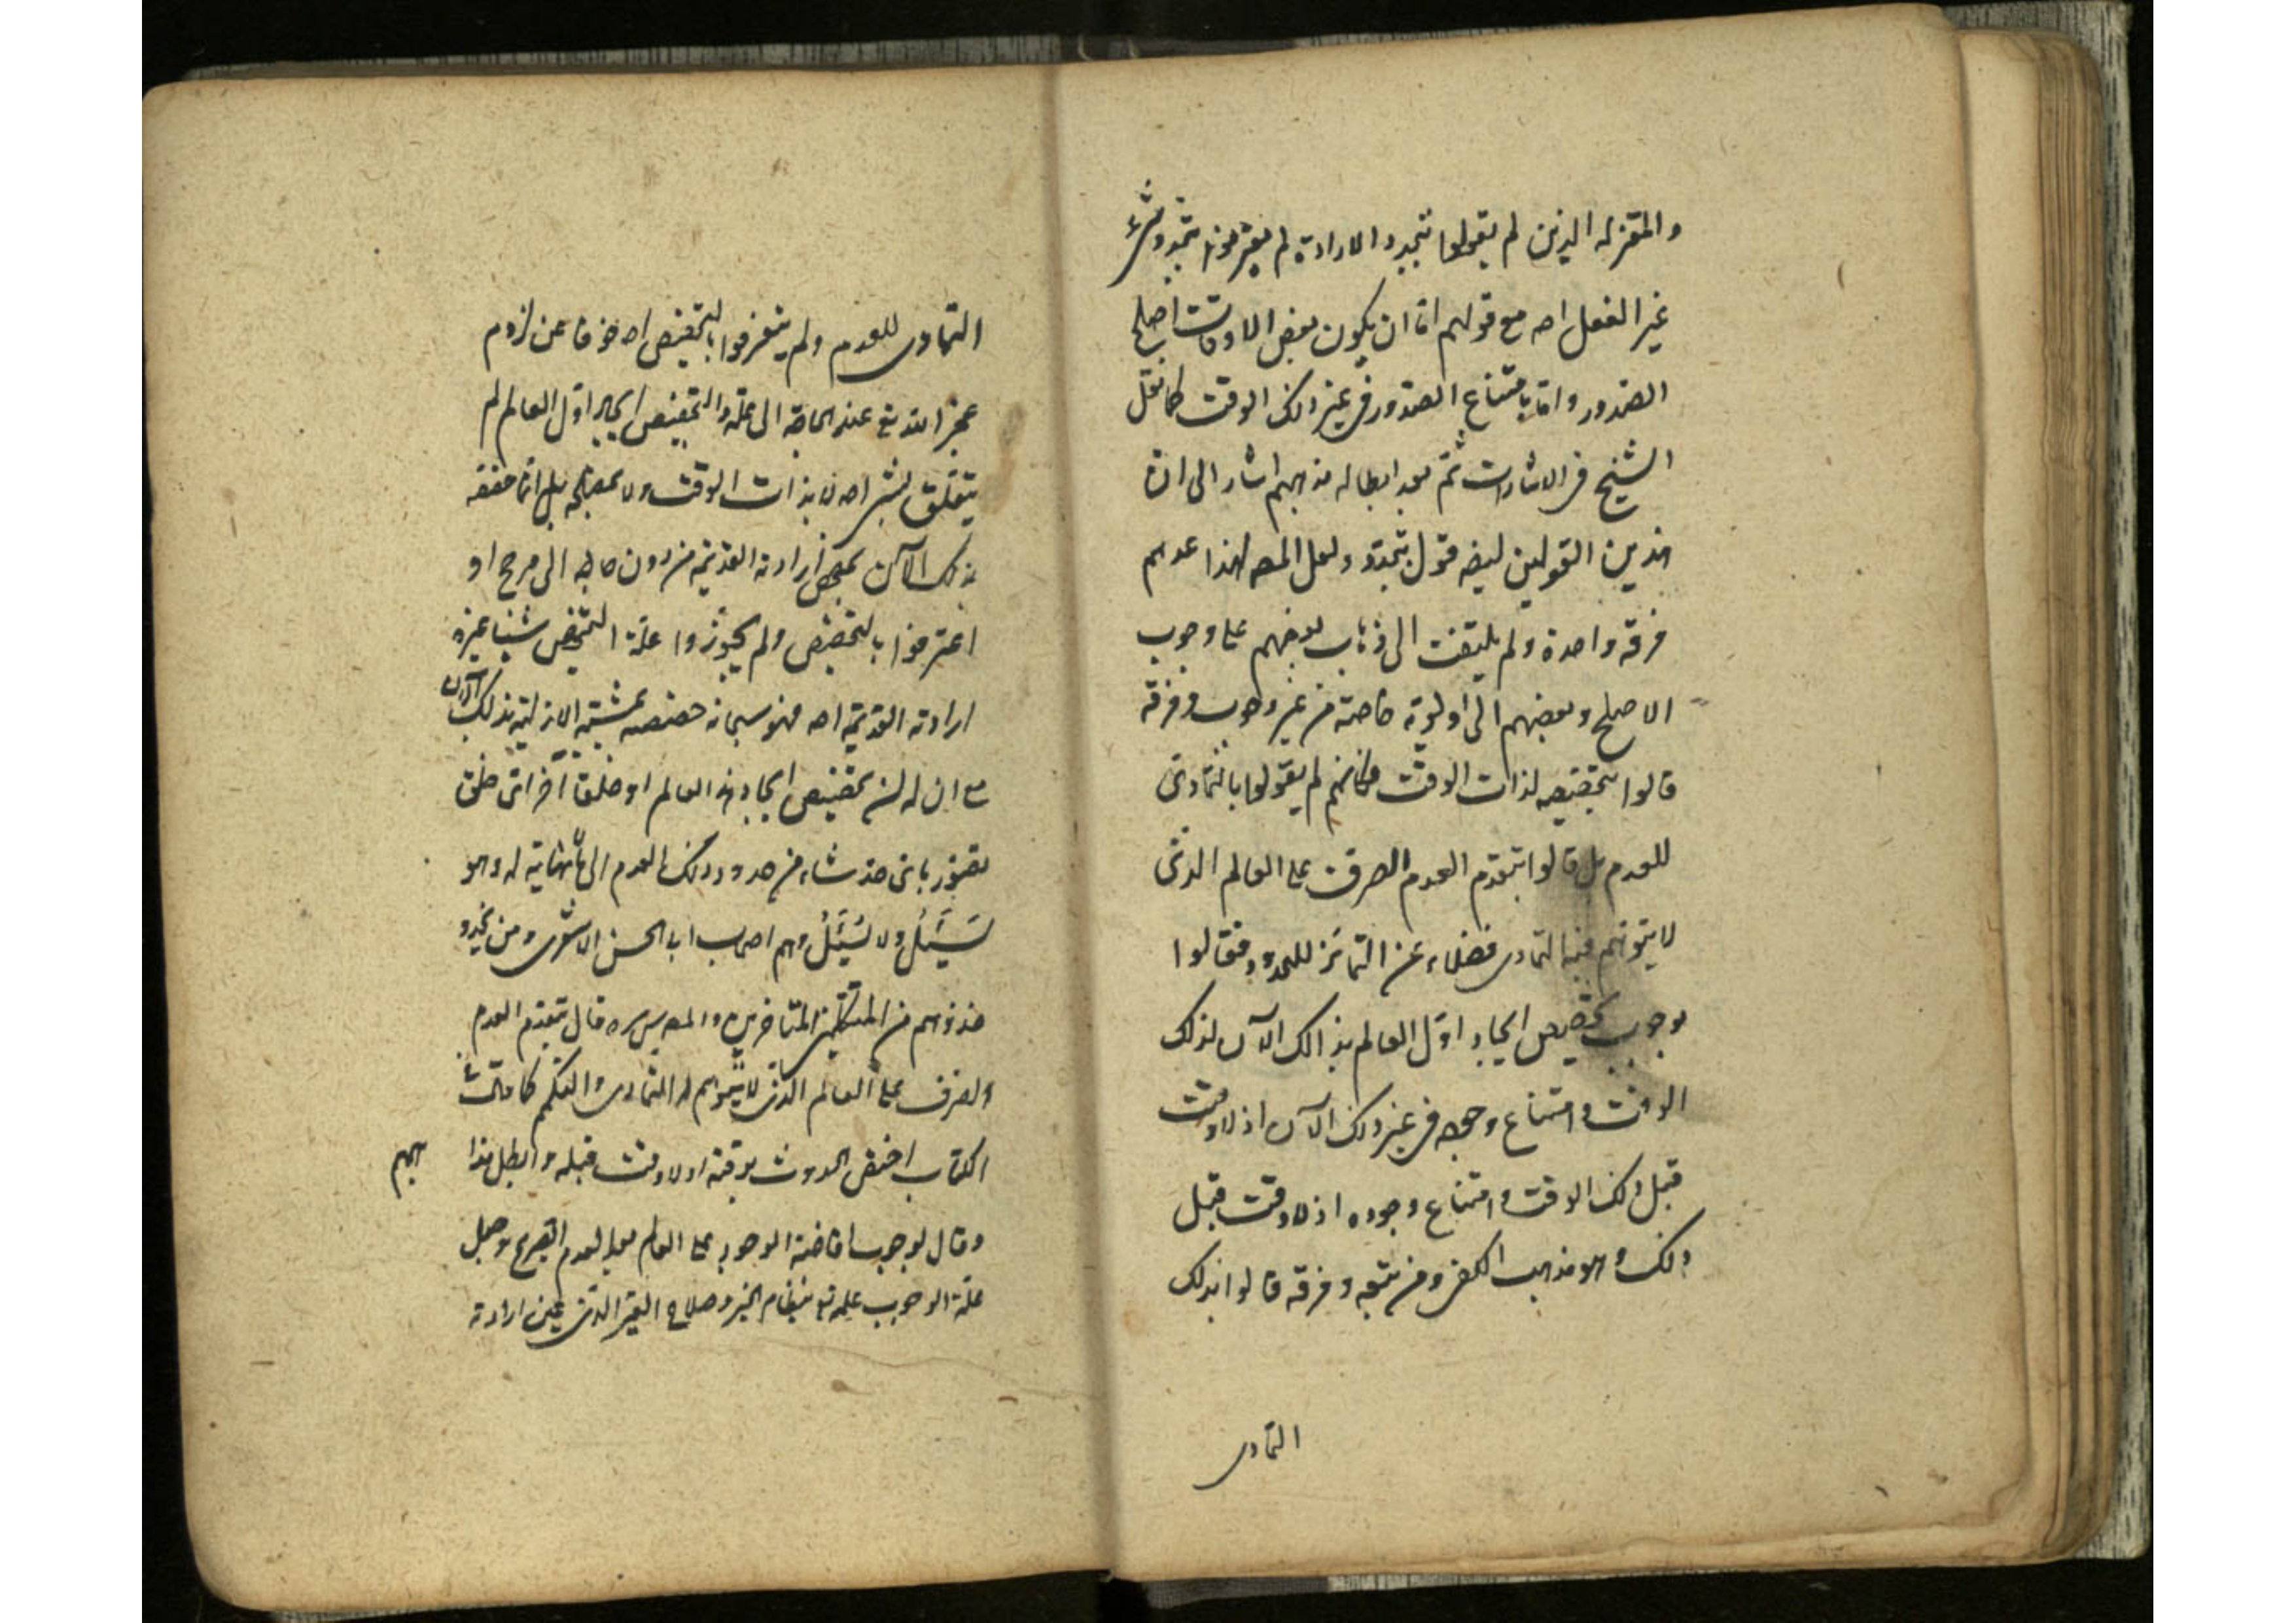 والمعتزله الذين لم يقولوا بتجدد الارادة لم يعترفوا بتجدد شئ
غير الفعل اصه مع قولهم اما ان يكون بعض الاوقات اصلح
الصدور واما بامتناع الصدور فى غير ذلك الوقت كما نقل
الشيخ فى الاشارات ثم بعد ابطاله مذهبهم اشار الى ان
هذين القولين ليضه قول بتجدد ولعل المصه لهذا عدهم
فرقه واحدة ولم يلتفت الى ذهاب بعضهم على وجوب
الاصلح وبعضهم الى اولوية خاصة من غير وجوب وفرقه
قالوا بتخصيصه لذات الوقت فكانهم لم يقولوا بالتمادى
للعدم بل قالوا بتقدم العدم الصرف على العالم الذى
لا يتوهم فيه التمادى فضلاء عن التمائز للحدود فقالوا
بوجوب تخصيص ايجاد اول العالم بذالك الآن لذلك
الوقت وامتناع وجوده فى غير ذلك الآن اذ لا وقت
قبل ذلك الوقت وامتناع وجوده اذ لا وقت قبل
ذلك وهو مذهب الكعبى ومن تبعه وفرقه قالوا بذلك
التمادى
التمادى للعدم ولم يتعرفوا بالتخصيص اصه خوفا عن لزوم
عجز الله تع عند الحاجة الى علة والتخصيص ايجاد اول العالم لم
يتعلق بشئ اصه لا بذات الوقت ولا بمصلحه بل انما خصصه
بذلك الآن بمحض ارادته القديمه من دون حاجه الى مرجح او
اعترفوا بالتخصيص ولم يجوزوا علة التخصيص شيئا غيره
ارادته القديمه اصه فهو سبحانه خصصه بمشيته الازليه بذلك الآن
مع ان له ان تخصيص ايجاد هذا العالم او خلقا آخر اى خلق
تصور باى حد شاء من حدود ذلك العدم الى ما لا نهاية له وهو
يَسْئَلُ ولا يُسْئَلُ وهم اصحاب ابا الحسن الاشعرى ومن يحذو
حذوهم من المتكلمين المتاخرين والمصه س سره قال بتقدم العدم
الصرف على العالم الذى لا يتوهم له التمادى والتكمم كما قالت
الكتاب اختص الحدوث بوقته اذ لا وقت قبله وابطل هذا
وقال بوجوب افاضة الوجود على العالم بعد العدم الصريح وجعل
علة الوجوب علمه تع بنظام الخير وصلاح الغير الذى عين ارادته